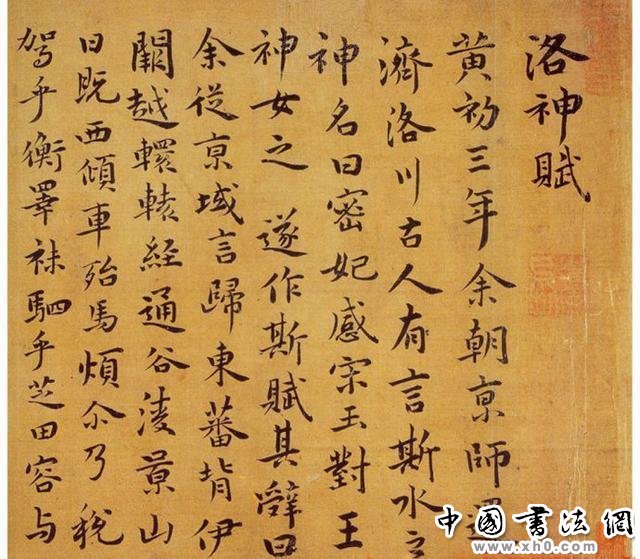 洛神賦
黄初三年余朝京師還
濟洛川古人有言斯水之
神名曰宓妃感宋玉對王
神女之 遂作斯賦其辭曰
余從京域言歸東蕃背伊
闕越轘轅経通谷陵景山
日既西傾車殆馬煩尒乃稅
駕乎衡睪秣駟乎芝田容与
中國書法网
www.xh0.com